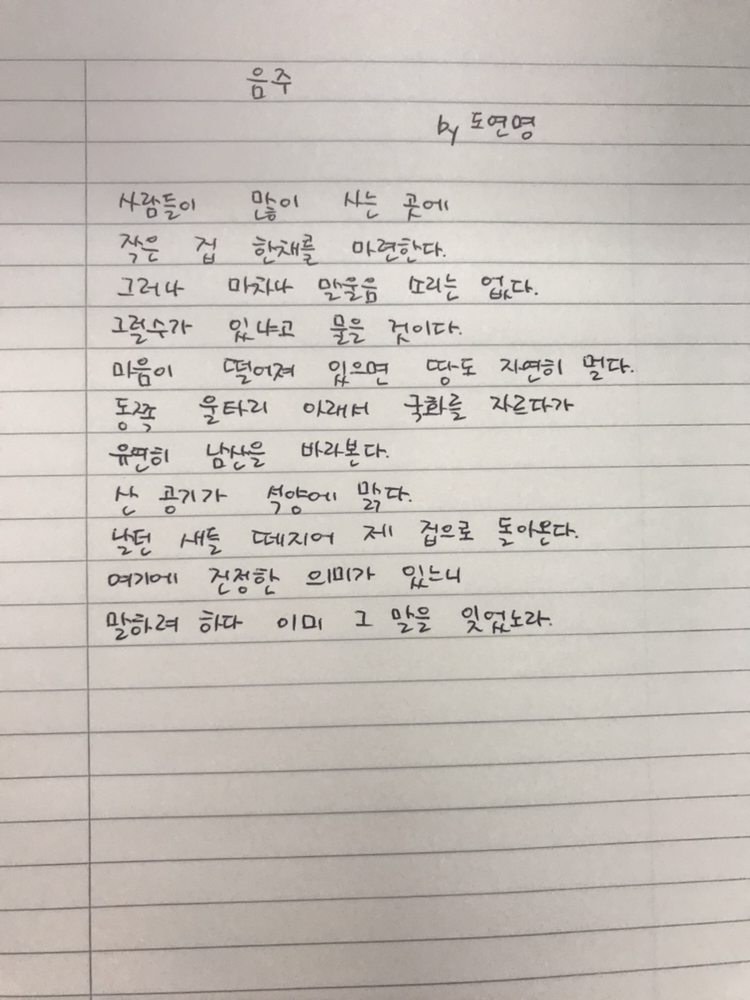 음주
by 도연명
사람들이 많이 사는 곳에
작은 집 한채를 마련한다.
그러나 마차나 말울음 소리는 없다.
그럴수가 있냐고 물을 것이다.
마음이 떨어져 있으면 땅도 자연히 멀다.
동쪽 울타리 아래서 국화를 자르다가
유연히 남산을 바라본다.
산 공기가 석양에 맑다.
날던 새들 떼지어 제 집으로 돌아온다.
여기에 진정한 의미가 있느니
말하려 하다 이미 그 말을 잊었노라.